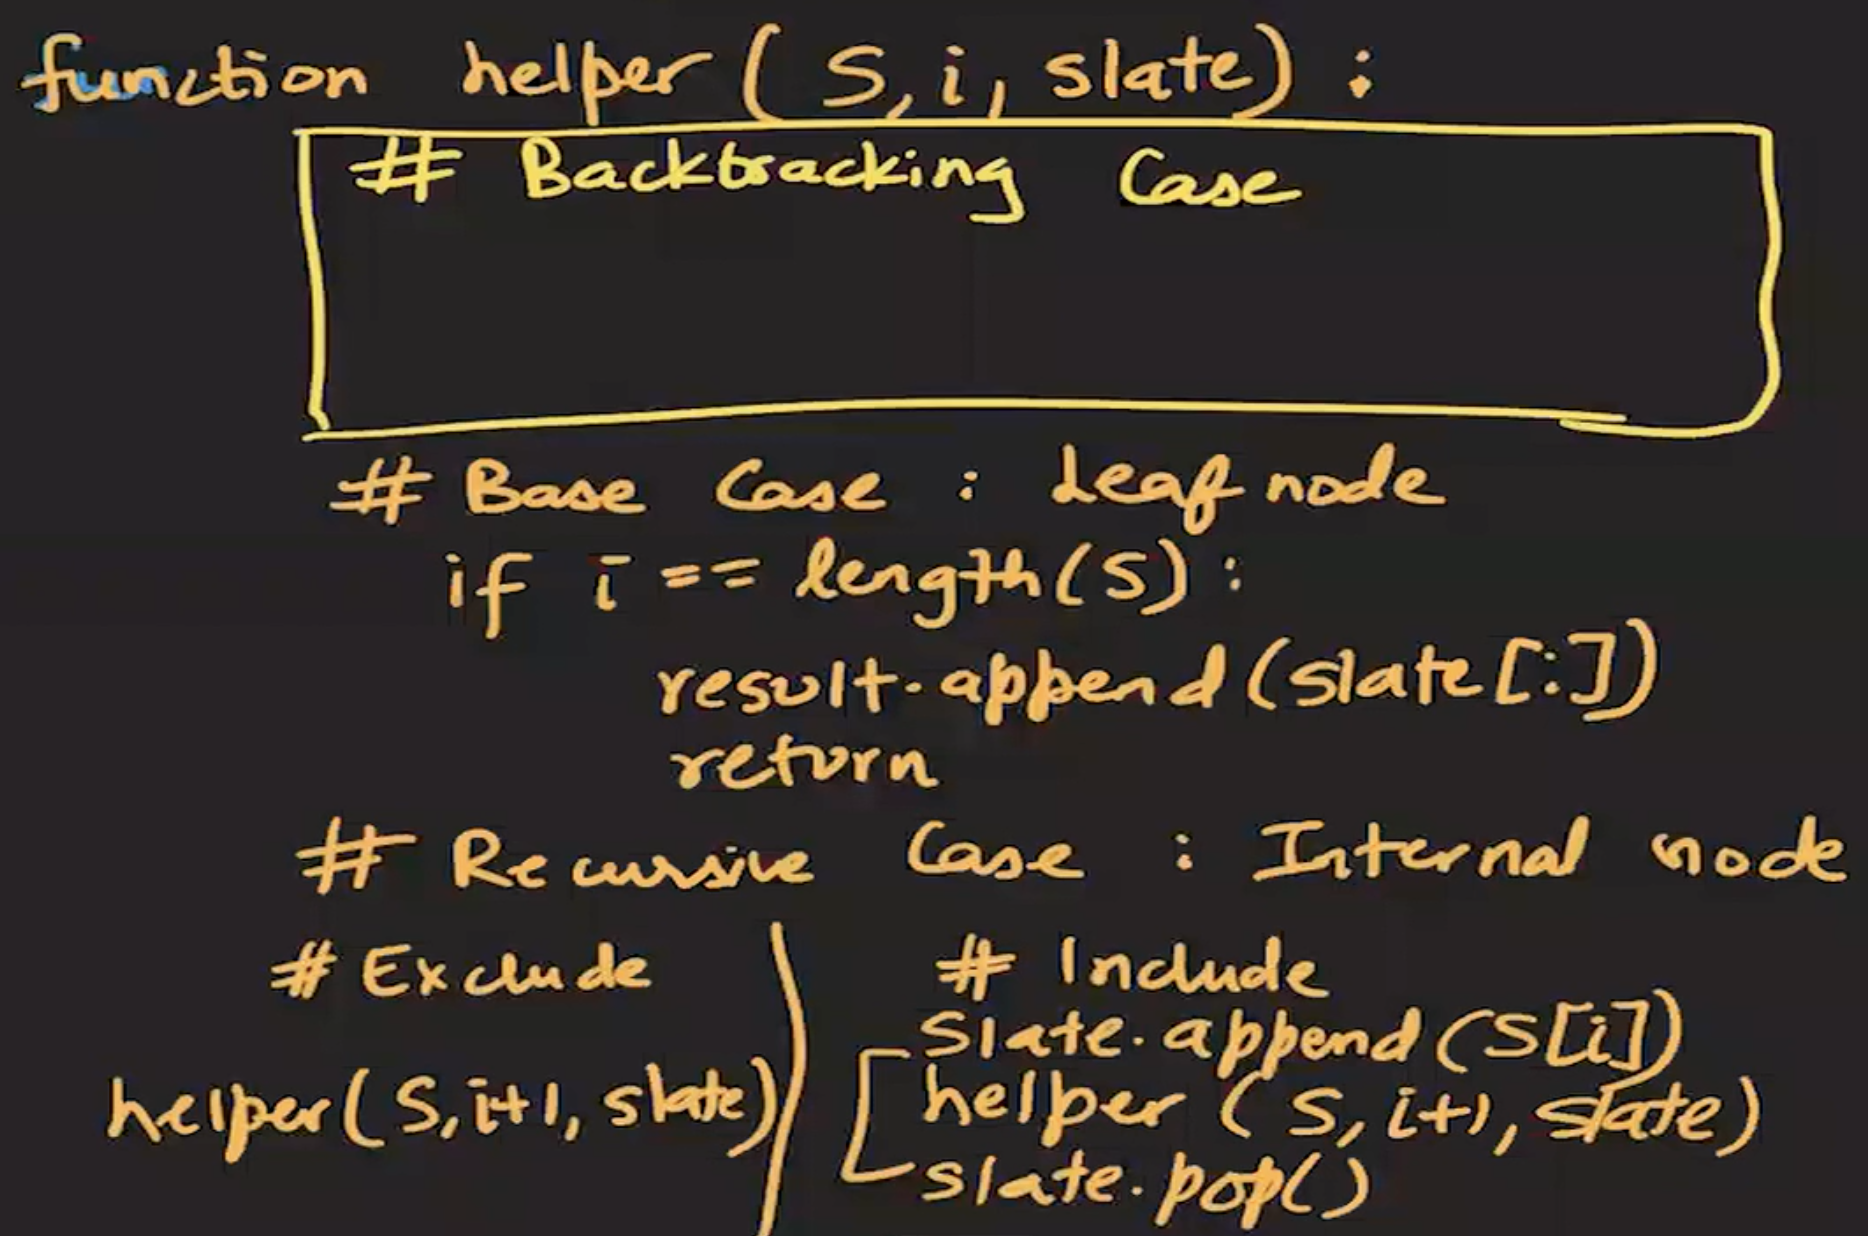 function helper (S, i, slate) :
# Backtracking Case
# Base Case : Leaf node
if i == length(S) :
result.append(slate[:])
return
# Recursive Case : Internal node
# Exclude
helper(S, i+1, slate)
# Include
slate.append(S[i])
helper (S, i+1, slate)
slate.pop()